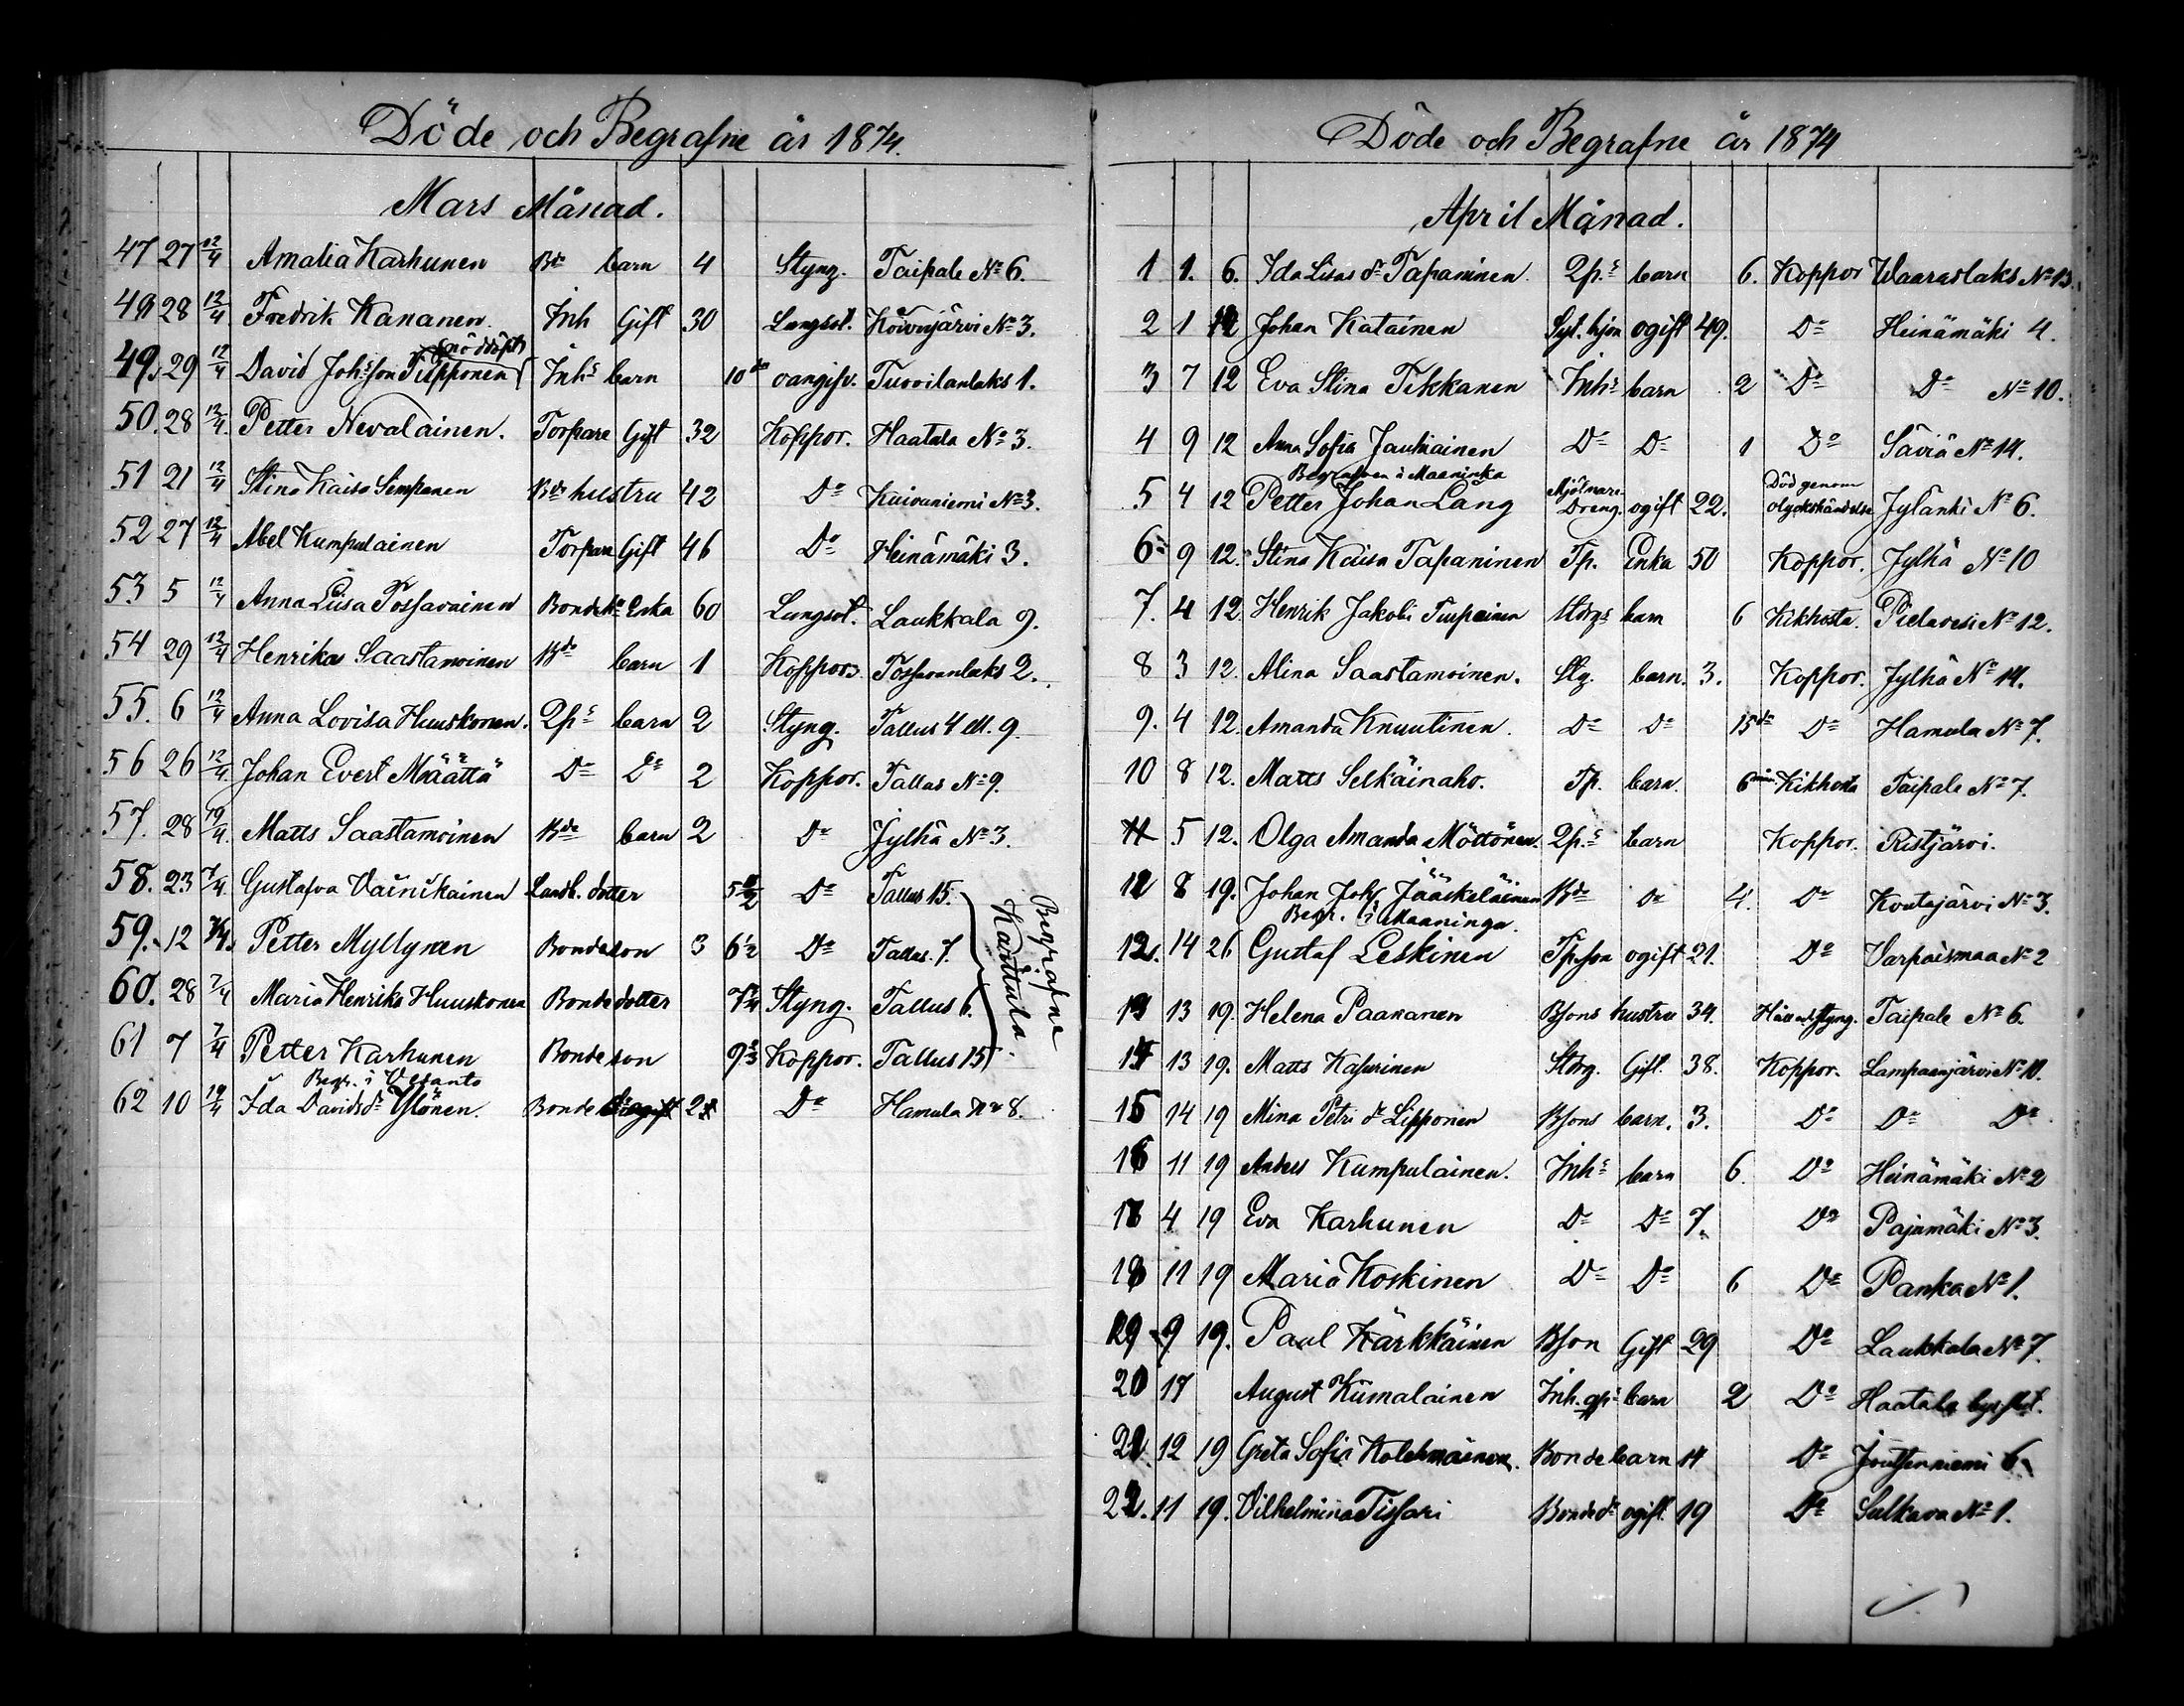 Döde och Begrafne år 1874.
Mars Månad.
47 27 12/4 Amalia Karhunen Bde barn 4 Styng. Taipale No 6.
49 28 12/4 Fredrik Kananen Inh Gift 30 Lungsot. Koivujärvi No 3.
49. 29 12/4 David Johsson Tupponen Inhs barn 10 dar Tuovilanlaks 1.
50. 28 12/4 Petter Nevalainen. Torpare Gift 32 Koppor. Haatala No 3.
51 21 12/4 Stina Kaisa Simpanen Bde hustru 42 Do Kaivaniemi No 3.
52 27 12/4 Abel Kumpulainen Torpare Gift 46 Do Heinämäki 3.
53 5 12/4 Anna Liisa Possavainen Bonde Enka 60 Lungsot. Laukkala 9.
54 29 12/4 Henrika Saastamoinen Bde barn 1 Koppor Tossavanlaks 2.
55. 6 12/4 Anna Lovisa Huuskonen. Tps barn 2 Styng. Tallus 4 ell. 9.
56 26 12/4 Johan Evert Määttä Do Do 2 Koppor. Tallus No 9.
57. 28 19/4 Matts Saastamoinen Bde barn 2 Do Jylhä No 3.
58. 23 7/4 Gustafva Vainikainen Landb. dotter Do Tallus 15.
59. 12 7/4 Petter Myllynen Bondeson 3 6½ Do Tallus 7.
60. 28 7/4 Maria Henrika Huuskonen Bondedotter Styng. Tallus 6.
61 7 7/4 Petter Karhunen Bondeson Koppor. Tallus 15
Begrafne Karttula
Begr. i Vesanto
62 10 19/4 Ida Davidsdr Ylönen. Bonde ogift Do Hamula No 8.
Döde och Begrafne år 1874
April Månad.
1 1. 6. Ida Lisas dr Tapaninen. Tps barn 6. Koppor Waaraslaks No 13.
2 1 12 Johan Katainen Syt. hjon ogift 49. Do Heinämäki 4.
3 7 12 Eva Stina Tikkanen Inhs barn 2 Do Do No 10.
4 9 12 Anna Sofia Jauhiainen Do Do 1 Do Säviä No 14.
Begrafven i Maaninka
5 4 12 Petter Johan Lang Mjölnare Dreng. ogift 22. Död genom olyckshändelse Jylänki No 6.
6 9 12. Stina Kaisa Tapaninen Tp. Enka 50 Koppor. Jylhä No 10
7. 4 12. Henrik Jakobi Turpeinen Stdrgs barn 6 Kikhosta. Pielavesi No 12.
8 3 12. Alina Saastamoinen. Stg. barn. 3. Koppor. Jylhä No 14.
9. 4 12. Amanda Knuutinen. Do Do 15 dr Do Hamula No 7.
10 8 12. Matts Selkäinaho. Tp. barn. 6 Kikhosta Taipale No 7.
11 5 12. Olga Amanda Möttönen Tps barn Koppor. Ristjärvi.
12 8 19. Johan Johs. Jääskeläinen Bde Do 4. Do Koutajärvi No 3.
Begr. i Maaninga.
12. 14 26 Gustaf Leskinen Tpson ogift 21. Do Varpaismaa No 2
13 13 19. Helena Paananen Bsons hustru 34. Håll och styng. Taipale No 6.
14 13 19. Matts Kasurinen Stdrg. Gift. 38. Koppor. Lampaanjärvi No 10.
15 14 19 Mina Petri dr Lipponen Bsons barn. 3. Do Do Do
16 11 19 Anders Kumpulainen. Inhs barn 6. Do Heinämäki No 2
17 4 19 Eva Karhunen Do Do 7. Do Pajumäki No 3.
18 11 19 Maria Koskinen Do Do 6 Do Panka No 1.
19 9 19. Paul Kärkkäinen Bson Gift 29 Do Laukkala No 7.
20 17 August Kumalainen Inh. qps barn 2 Do Haatala
21 12 19 Greta Sofia Kolehmainen. Bonde barn 14 Do Joutsenniemi 6.
22. 11 19. Vilhelmina Tissari Bondedr ogift. 19 Do Sulkava No 1.